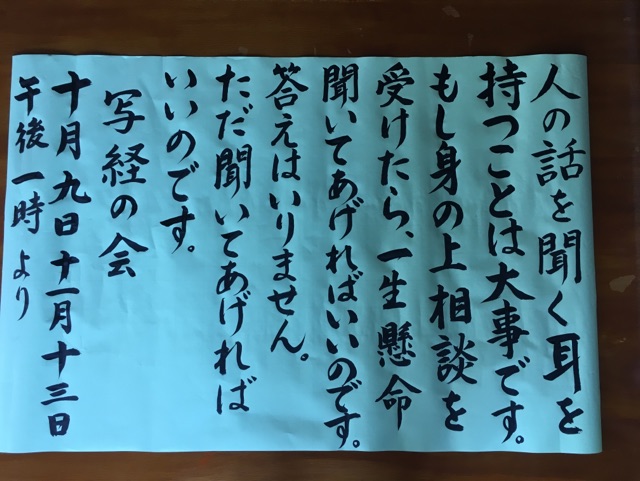 人の話を聞く耳を
持つことは大事です。
もし身の上相談を
受けたら、一生懸命
聞いてあげればいいのです。
答えはいりません。
ただ聞いてあげれば
いいのです。
写経の会
十月九日 十一月十三日
午後一時より